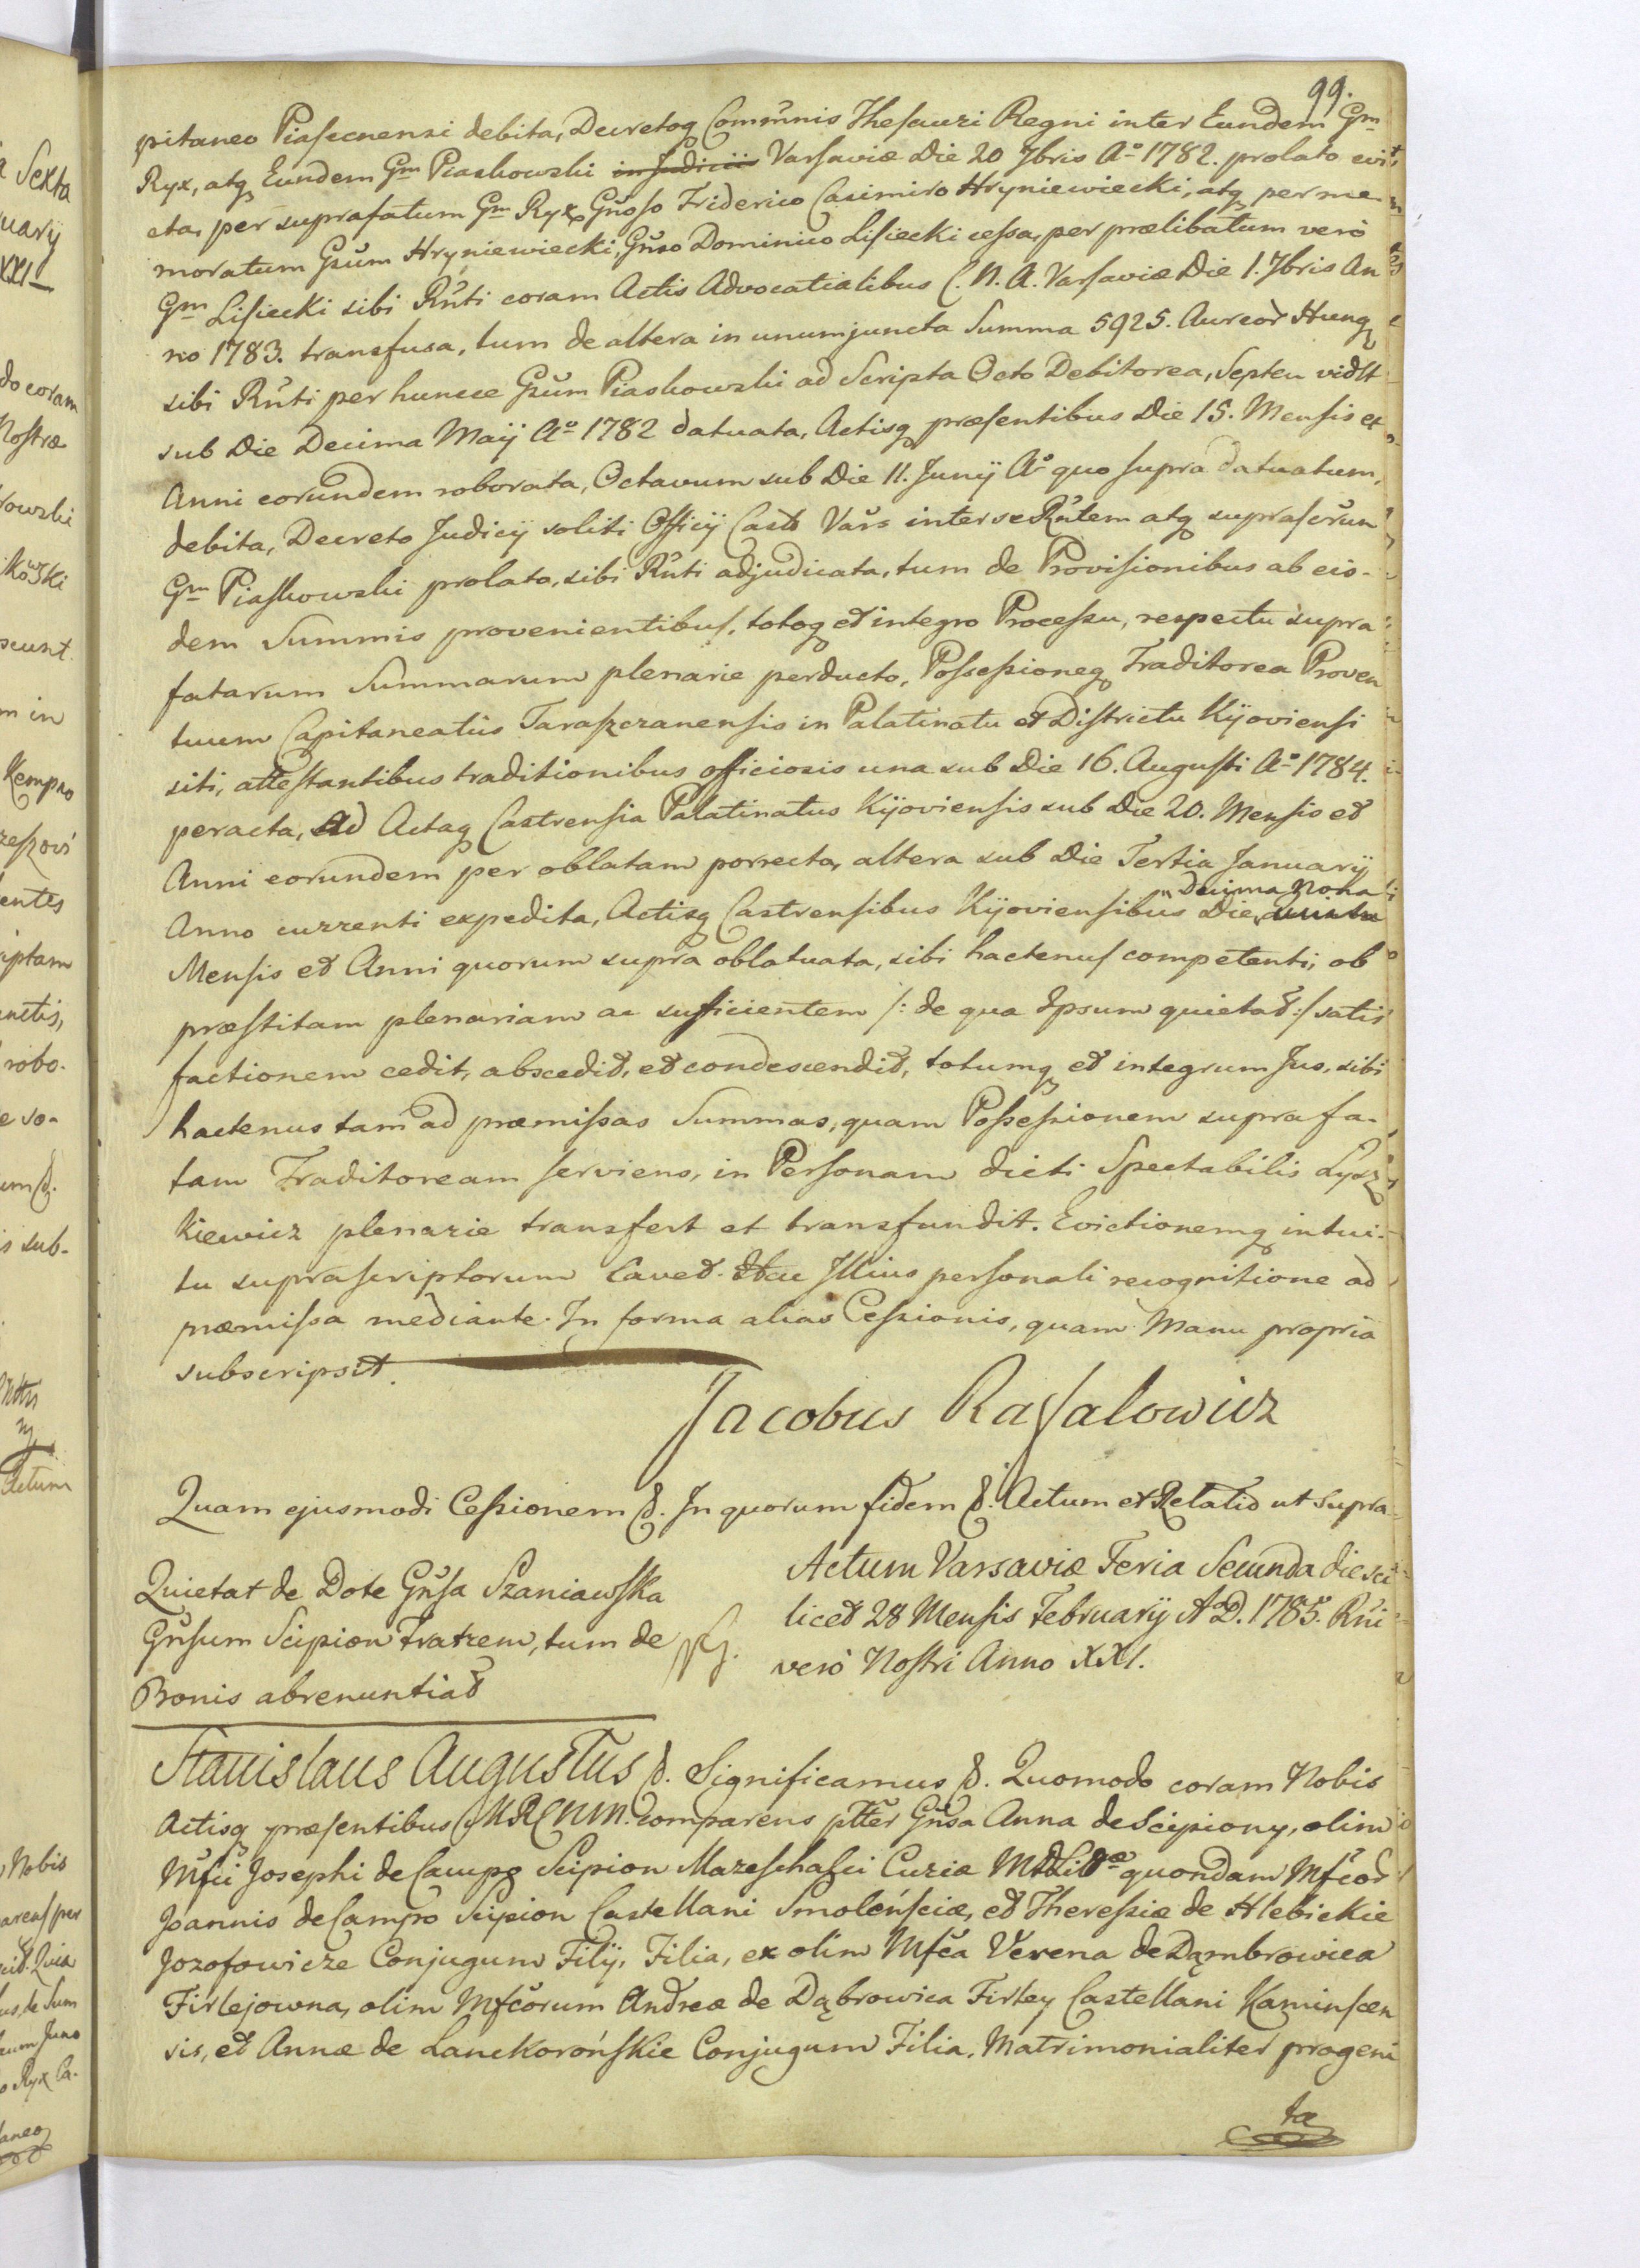 99.
pitaneo Piasecnensi debita, Decretoq Communis Thesauri Regni inter Eundem Gm
Ryx, atq Eundem Gm Piaskowski in Judicii Varsaviæ Die 20 7bris Ao 1782. prolato evi
cta, per suprafatum Gm Ryx, Gnoso Friderico Casimiro Hryniewiecki, atq per me
moratum Gsum Hryniewiecki, Gnso Dominico Lisiecki cessa, per prælibatum verò
Gm Lisiecki sibi Rnti coram Actis Advocatialibus C. N. A. Varsaviæ Die 1. 7bris An
no 1783. transfusa, tum de altera in unum juncta Summa 5925. Aureor Hung
sibi Rnti per huncce Gsum Piaskowski ad Scripta Octo Debitorea, Septem vidlt
sub Die Decima Maij Ao 1782 datuata, Actisq præsentibus Die 15. Mensis et
Anni eorundem roborata, Octavum sub Die 11. Junij Ao quo supra datuatum,
debita, Decreto Judicij soliti Officij Castr Vars inter se Rntem atq suprascrum
Gm Piaskowski prolato, sibi Rnti adjudicata, tum de Provisionibus ab eis-
dem Summis provenientibus, totoq et integro Processu, respectu supra
fatarum Summarum plenarie perducto, Possessioneq Traditorea Proven
tuum Capitaneatûs Taraszczanensis in Palatinatu et Districtu Kijoviensi
siti, attestantibus traditionibus officiosis una sub Die 16. Augusti Ao 1784.
peracta, Ad Actaq Castrensia Palatinatus Kijoviensis sub Die 20. Mensis et
Anni eorundem per oblatam porrecta, altera sub Die Tertia Januarij
Decima Nona
Anno currenti expedita, Actisq Castrensibus Kijoviensibus Die
Mensis et Anni quorum supra oblatuata, sibi hactenus competenti, ob
præstitam plenariam ac sufficientem /: de qua Ipsum quietat :/ satis
factionem cedit, abscedit, et condescendit, totumq et integrum Jus, sibi
hactenus tam ad præmissas Summas, quam Possessionem suprafa-
tam Traditoream serviens, in Personam dicti Spectabilis Lysz
kiewicz plenarie transfert et transfundit. Evictionemq intui-
tu suprascriptorum Cavet. Hac Illius personali recognitione ad
præmissa mediante. In forma alias Cessionis, quam Manu propria
subscripsit.
Jacobus Rafalowicz
Quam ejusmodi Cessionem &. In quorum fidem &. Actum et Relatio ut supra
Quietat de Dote Gnsa Szaniawska
Gnsum Scipion Fratrem, tum de
Bonis abrenuntiat
Actum Varsaviæ Feria Secunda die sci
licet 28 Mensis Februarij A.D. 1785. Rni
verò Nostri Anno XXI.
Stanislaus Augustus &. Significamus &. Quomodo coram Nobis
Actisq præsentibus MRCNM. comparens ptter Gnsa Anna de Scipiony, olim
Mfci Josephi de Campo Scipion Mareschalci Curiæ quondam Mfcor
Joannis de Campo Scipion Castellani Smolensciæ, et Theressiæ de Hlebickie
Jozofowicze Conjugum Filij, Filia, ex olim Mfca Verena de Dąmbrowica
Firlejowna, olim Mfcorum Andreæ de Dąbrowica Firley Castellani Kaminscen
sis, et Annæ de Lanckorońskie Conjugum Filia, Matrimonialiter progeni
ta